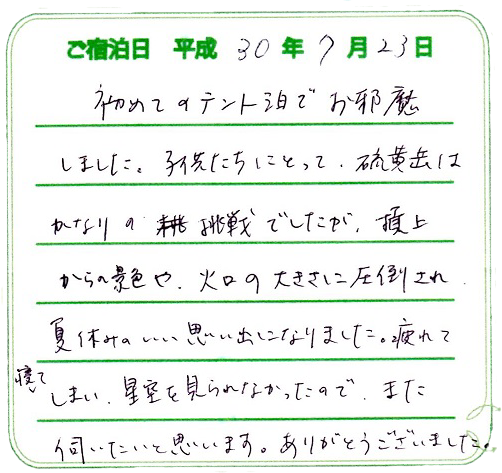 ご宿泊日 平成 30年 7月23日
初めてのテント泊でお邪魔
しました。子供たちにとって、硫黄岳は
かなりの挑戦でしたが、頂上
からの景色や、火口の大きさに圧倒され、
夏休みのいい思い出になりました。疲れて
寝て
しまい、星空を見られなかったので、また
伺いたいと思います。ありがとうございました。